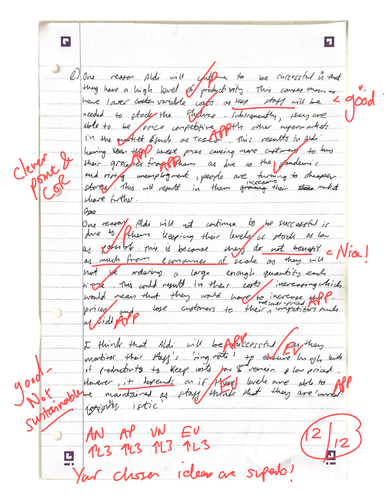 e) One reason Aldi will continue to be successful is that
they have a high level of productivity. This causes them to
have lower variable costs as less staff will be < good
needed to stock the shelves. Subsequently, they are
able to be price competitive with other supermarkets
APP
in the market such as Tesco. This results in Aldi
APP
having the lowest prices causing more customers to buy
APP
their groceries from them as due to the pandemic
and rising unemployment, people are turning to cheaper
stores. This will result in them increasing their market
share further.
Clever point & COR
One reason Aldi will not continue to be successful is
due to them keeping their levels of stock as low
as possible. This is because they do not benefit < Nice!
as much from economies of scale as they will
not be ordering a large enough quantity each
time. This could result in their costs increasing which
would mean that they would have to increase
APP
prices and lose customers to their lower priced competitors such
as Lidl. APP
I think that Aldi will be successful as they
APP
EV
monitor their staff's 'ring rate' to ensure high levels
of productivity to keep costs low & remain low priced.
However, it depends on if these levels are able to
APP
EV
be maintained as staff think that they are
good- Not sustainable
AN AP UN EV
↑L3 ↑L3 ↑L3 ↑L3
12/12
Your chosen ideas are superb!